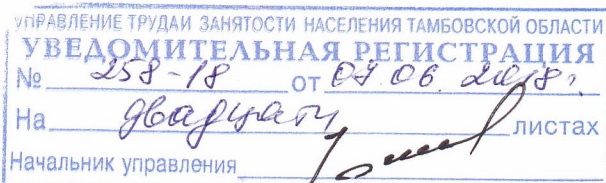 УПРАВЛЕНИЕ ТРУДА И ЗАНЯТОСТИ НАСЕЛЕНИЯ ТАМБОВСКОЙ ОБЛАСТИ
УВЕДОМИТЕЛЬНАЯ РЕГИСТРАЦИЯ
№ 258-18 от 07.06.2018г.
На двадцати листах
Начальник управления